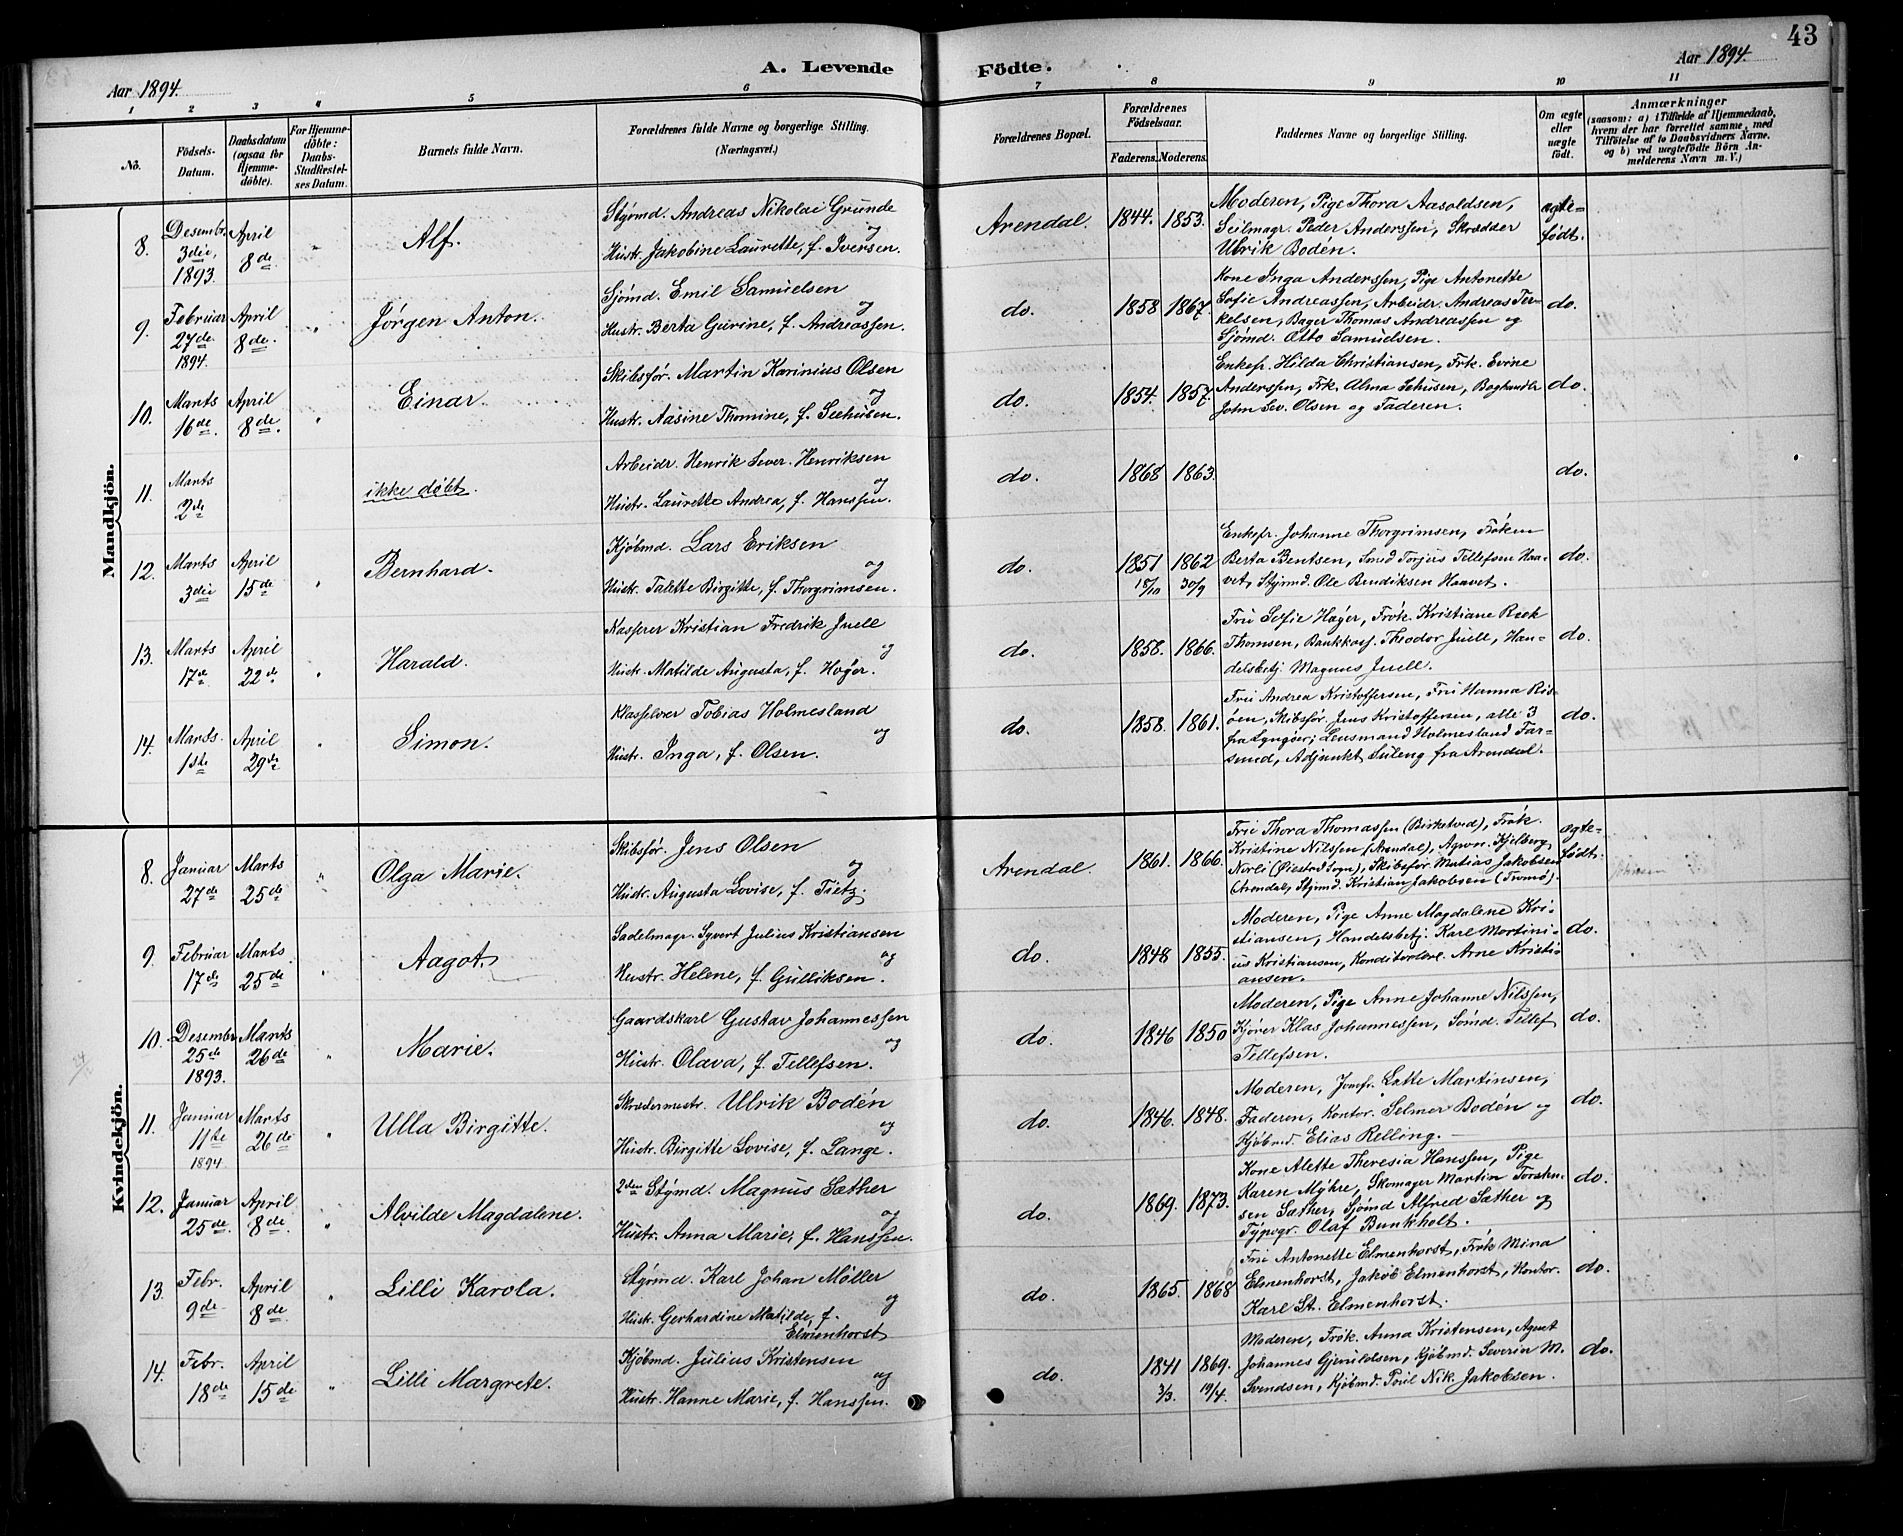 43
Aar 1894.
A. Levende
Fødte.
Aar 1894.
1 2 3 4 5 6 7 8 9 10 11
No.
Födsels-
Datum.
Daabsdatum
(ogsaa for
Hjemme-
döbte).
For Hjemme-
döbte:
Daabs-
Stadfæstel-
ses Datum.
Barnets fulde Navn.
Forældrenes fulde Navne og borgerlige Stilling.
(Næringsvei.)
Forældrenes Bopæl.
Forældrenes
Födselsaar.
Faderens. Moderens.
Faddernes Navne og borgerlige Stilling.
Om ægte
eller
uægte
födt.
Anmærkninger
(saasom: a) i Tilfælde af Hjemmedaab,
hvem der har forrettet samme, med
Tilföielse af to Daabsvidners Navne,
og b) ved uægtefödte Börn An-
melderens Navn m. V.)
Mandkjön.
8.
Desembr.
3die,
1893.
April
8de
"
Alf.
Stýrmd. Andreas Nikolai Grunde
og
Hustr. Jakobine Laurette, f. Iversen.
Arendal.
1844. 1853.
Moderen, Pige Thora Aasoldsen,
Seilmagr. Peder Anderssen, Skrædder
Ulrik Bodén.
ægte-
født.
9.
Februar
27de
1894.
April
8de.
"
Jørgen Anton.
Sjømd. Emil Samuelsen
og
Hustr. Berta Gurine, f. Andreassen.
do.
1858 1867.
Kone Inga Anderssen, Pige Antonette
Sofie Andreassen, Arbeidr. Andreas Ter-
kelsen, Bager Thomas Andreassen og
Sjømd. Otto Samuelsen.
do.
10.
Marts
16de.
April
8de.
"
Einar.
Skibsfør. Martin Karinius Olsen
og
Hustr. Aasine Thomine, f. Seehusen.
do.
1854. 1857.
Enkefr. Hilda Christiansen, Frk. Evine
Anderssen, Frk. Alma Sehusen, Boghandlr
John Sev. Olsen og Faderen.
do.
11.
Marts
2de
ikke døbt.
Arbeidr. Henrik Sever. Henriksen
og
Hustr. Laurette Andrea, f. Hanssen.
do.
1868 1863.
do.
12.
Marts
3die
April
15de
"
Bernhard.
Kjøbmd. Lars Eriksen
og
Hustr. Talette Birgitte, f. Thorgrimsen.
do.
1851 1862
18/10 30/9
Enkefr. Johanne Thorgrimsen, Frøken
Berta Bentsen, Smed Torjus Tellefsen Haa-
vet, Stýrmd. Ole Bendiksen Haavet.
do.
13.
Marts
17de
April
22de
"
Harald.
Kasserer Kristian Fredrik Juell
og
Hustr. Matilde Augusta, f. Høyer.
do.
1858. 1866.
Fru Sofie Høyer, Frøk. Kristiane Reek
Thomsen, Bankkass. Theodor Juell, Han-
delsbetj. Magnus Juell.
do.
14.
Marts.
1ste
April
29de
"
Simon.
Klasselærer Tobias Holmesland
og
Hustr. Inga, f. Olsen.
do.
1858. 1861.
Fru Andrea Kristoffersen, Fru Hanna Ris-
øen, Skibsfør. Jens Kristoffersen, alle 3
fra Lyngøer; Lensmand Holmesland Far-
sund, Adjunkt Seileng fra Arendal.
do.
Kvindekjön.
8.
Januar
27de
Marts
25de
"
Olga Marie.
Skibsfør. Jens Olsen
og
Hustr. Augusta Lovise, f. Tietz.
Arendal.
1861. 1866.
Fru Thora Thomassen (Birketved), Frøk.
Kristine Nilssen (Arendal), Agron. Kjelberg
Nerli (Øiestad Sogn), Skibsfør Matias Jakobsen
(Arendal), Stýrmd. Kristian Jakobsen (Tromø).
ægte-
født.
9.
Februar
17de
Marts
25de
"
Aagot.
Sadelmagr. Syvert Julius Kristiansen
og
Hustr. Helene, f. Gulliksen.
do.
1848 1855.
Moderen, Pige Anne Magdalene Kri-
stiansen, Handelsbetj. Karl Martini-
us Kristiansen, Konditorlærl. Arne Kristi-
ansen.
do.
10.
Desembr
25de
1893.
Marts
26de
"
Marie.
Gaardskarl Gustav Johannessen
og
Hustr. Olava, f. Tellefsen.
do.
1846 1850
Moderen, Pige Anne Johanne Nilssen,
Kjører Klas Johannessen, Sømd. Tellef
Tellefsen.
do.
11.
Januar
11te
1894.
Marts
26de
"
Ulla Birgitte.
Skrædermestr. Ulrik Bodén
og
Hustr. Birgitte Lovise, f. Lange.
do.
1846. 1848.
Moderen, Jomfr. Latte Martinsen,
Faderen, Kontor. Selmer Bodén og
Kjøbmd. Elias Relling.
do.
12.
Januar
25de.
April
8de.
"
Alvilde Magdalene.
2den Stýrmd. Magnus Sæther
og
Hustr. Anna Marie, f. Hanssen.
do.
1869. 1873.
Kone Alette Theresia Hanssen, Pige
Karen Mýhre, Skomager Martin Torsten-
sen Sæther, Sjømd Alfred Sæther og
Týpogr. Olaf Bunkholt.
do.
13.
Febr.
9de
April
8de
"
Lilli Karola.
Stýrmd. Karl Johan Møller
og
Hustr. Gerhardine Matilde, f.
Elmenhorst
do.
1865. 1868
Fru Antonette Elmenhorst, Frøk Mina
Elmenhorst, Jakob Elmenhorst, Kontor.
Karl St. Elmenhorst.
do.
14.
Febr.
18de
April
15de
"
Lilli Margrete.
Kjøbmd. Julius Kristensen
og
Hustr. Hanne Marie, f. Hanssen.
do.
1841 1869.
3/3. 19/4.
Moderen, Frøk. Anna Kristensen, Agent
Johannes Gjeruldsen, Kjøbmd. Severin M.
Svendsen, Kjøbmd. Poul Nik. Jakobsen.
do.